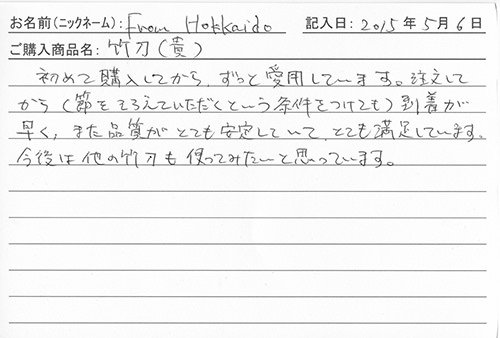 お名前(ニックネーム): From Hokkaido 記入日: 2015年5月6日
ご購入商品名: 竹刀(貴)
初めて購入してから、ずっと愛用しています。注文して
から(節をそろえていただくという条件をつけても)到着が
早く、また品質がとても安定していて、とても満足しています。
今後は他の竹刀も使ってみたいと思っています。